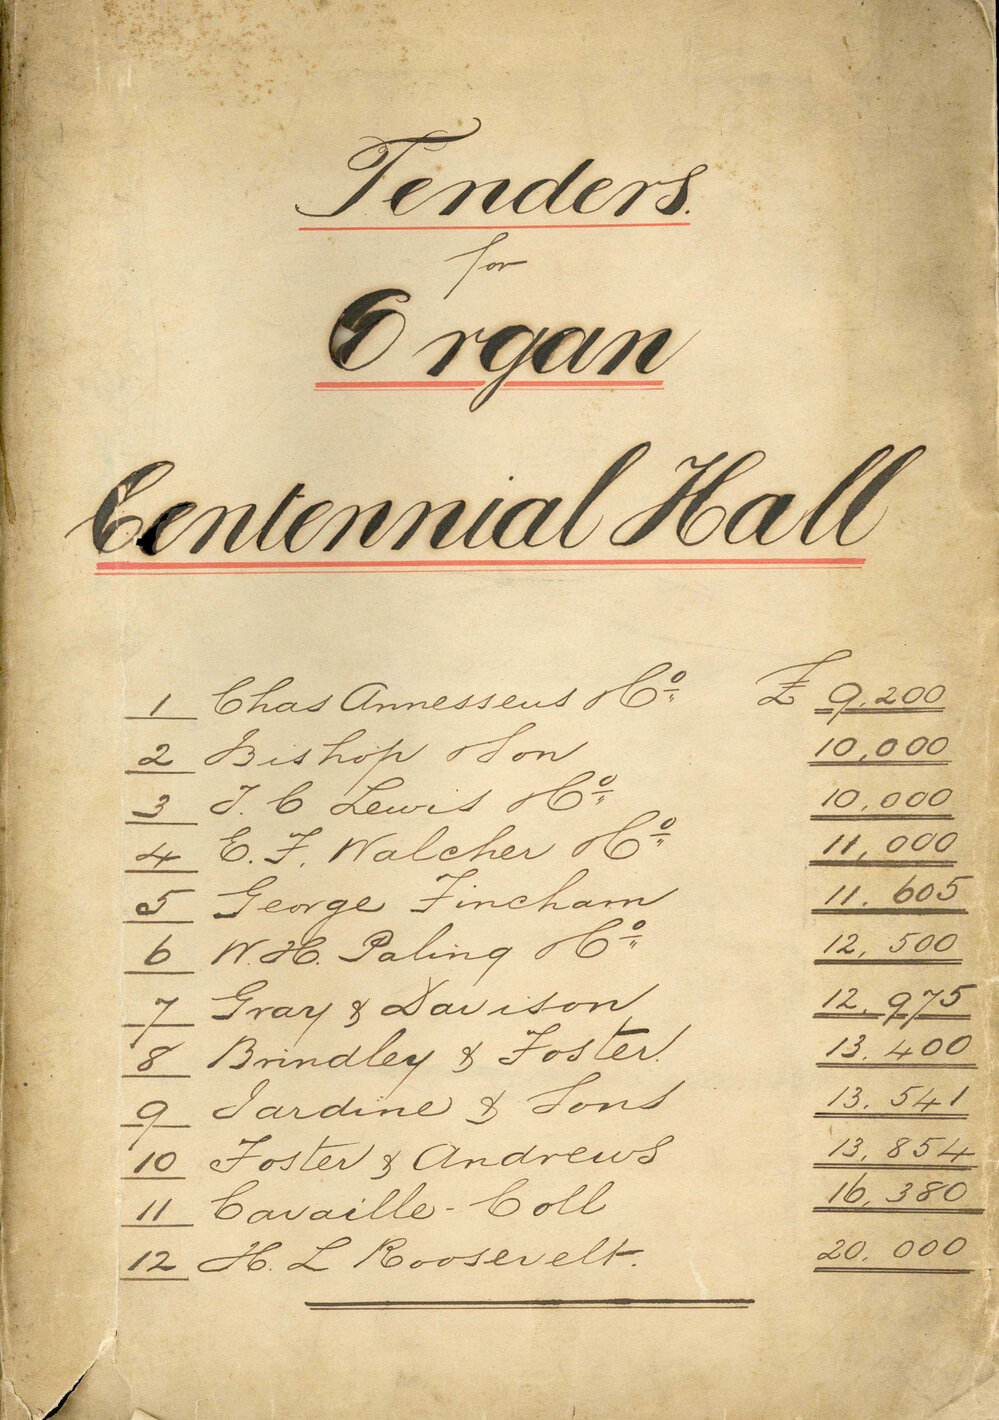 Tenders.
for
Organ
Centennial Hall
1 Chas Annesseus & Co. £ 9,200
2 Bishop & Son 10,000
3 T. C Lewis & Co. 10,000
4 E. F. Walcher & Co. 11,000
5 George Fincham 11.605
6 W. H. Paling & Co. 12,500
7 Gray & Davison 12.975
8 Brindley & Foster. 13.400
9 Jardine & Sons 13.541
10 Foster & Andrews 13,854
11 Cavaille-Coll 16,380
12 H. L Roosevelt. 20.000